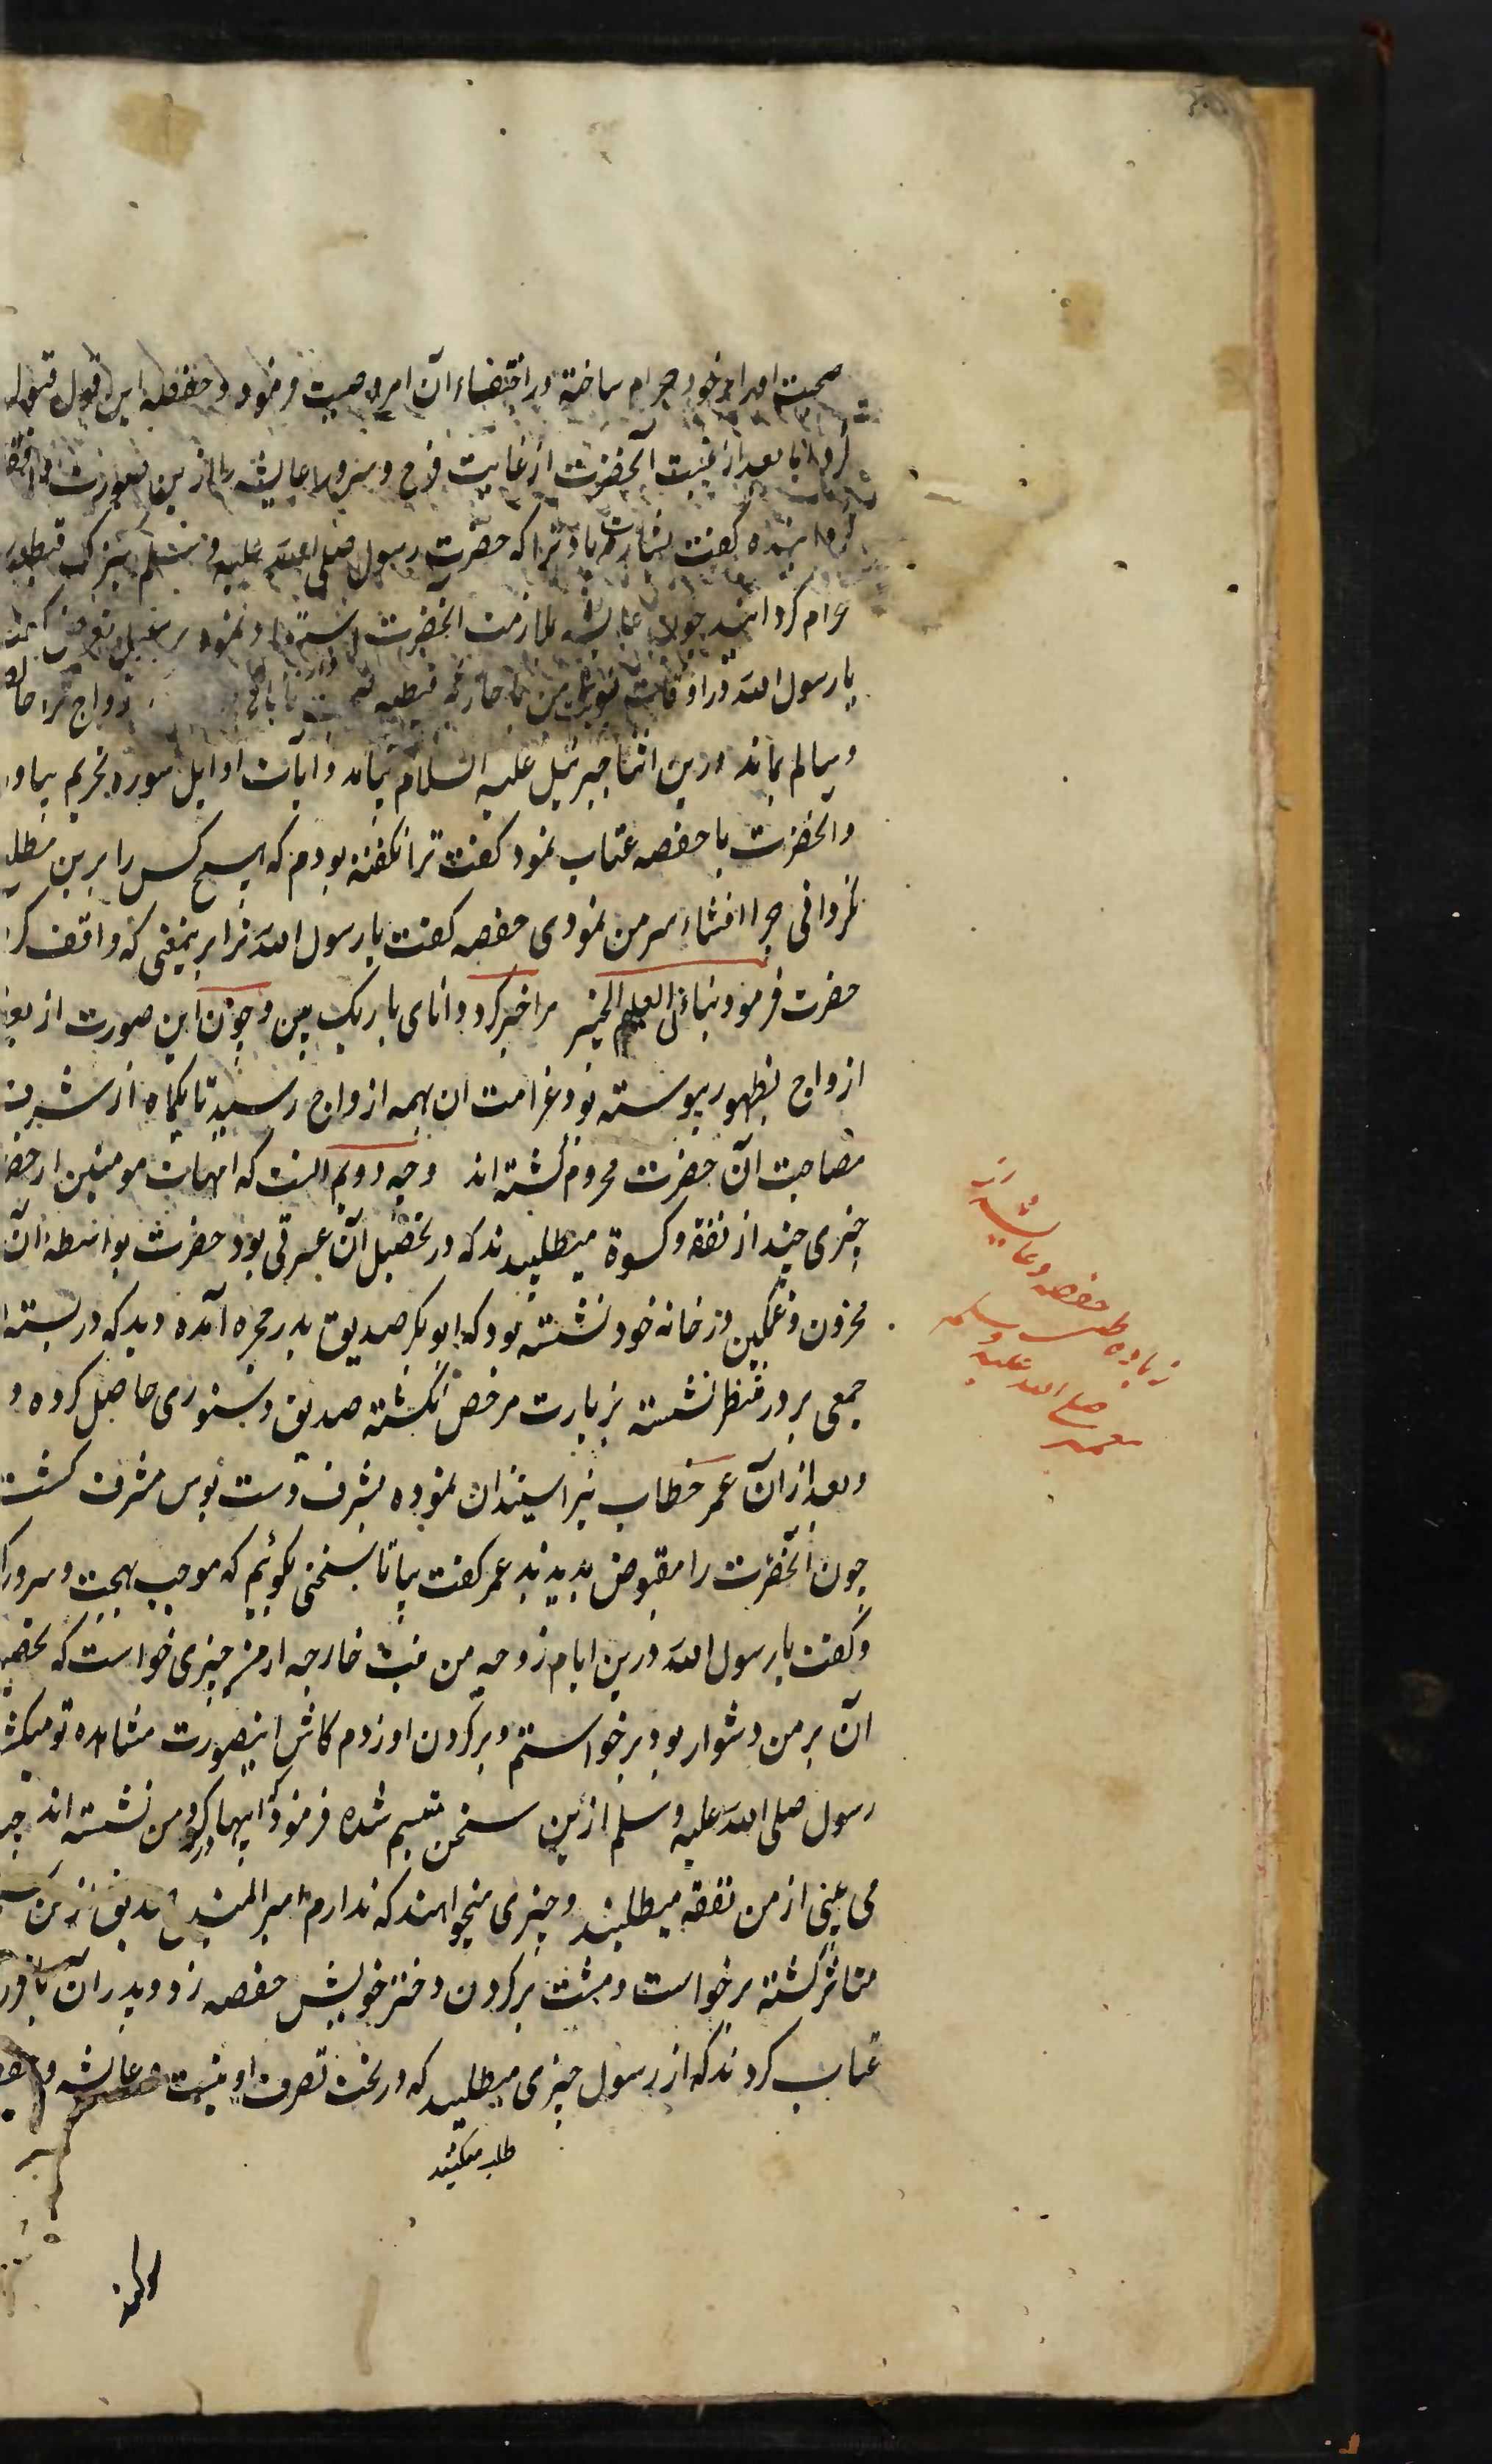 صحبت او را بر خود حرام ساخته در اختفاء آن امر وصیت فرمود و حفصه این قول قبول
کرد اما بعد از غیبت آنحضرت از غایت فرح و سرور عایشه را ازین صورت واقف
گردانیده گفت بشارت باد ترا که حضرت رسول صلی الله علیه و سلم کنیزک قبطیه
حرام گردانید چون عایشه ملازمت آنحضرت
یا رسول الله در اوقات نوبت من با جاریه قبطیه ازواج ترا حال
و سالم بماند درین اثنا جبرئیل علیه السلام بیامد و آیات اوایل سوره تحریم بیاور
و آنحضرت با حفصه عتاب نمود گفت ترا نگفته بودم که هیچ کس را برین مطلع
نگردانی چرا افشاء سر من نمودی حفصه گفت یا رسول الله ترا برینمعنی که واقف کر
حضرت فرمود نبأنی العلیم الخبیر مرا خبر کرد دانای باریک بین و چون این صورت از بعض
ازواج بظهور پیوسته بود غرامت آن بهمه ازواج رسید تا یکماه از شرف
مصاحبت آن حضرت محروم گشته اند وجه دویم آنست که امهات مومنین از حضر
چیزی چند از نفقه و کسوة میطلبیدند که در تحصیل آن عسرتی بود حضرت بواسطه آن
محزون و غمگین در خانه خود نشسته بود که ابوبکر صدیق بدر حجره آمده دید که در بسته
جمعی بر در منتظر نشسته بزیارت مرخص نگشته صدیق دستوری حاصل کرده و
و بعد از آن عمر خطاب نیز استیذان نموده بشرف دست بوس مشرف گشت
چون آنحضرت را مقبوض بدیدند عمر گفت بیا تا سخنی بگوئیم که موجب بهجت و سرور
و گفت یا رسول الله درین ایام زوجه من بنت خارجه از من چیزی خواست که تحصیل
آن بر من دشوار بود برخواستم و بر گردن او زدم کاش اینصورت مشاهده تو میگشت
رسول صلی الله علیه و سلم ازین سخن متبسم شده فرمود که اینها که گرد من نشسته اند چنانچه
می بینی از من نفقه میطلبند و چیزی میخواهند که ندارم
متاثر گشته برخواست و مشت بر گردن دختر خویش حفصه زد و پدران
عتاب کردند که از رسول چیزی میطلبید که در تحت تصرف او نیست و عایشه و
طلب میکنید
زیاده طلب حفصه و عایشه از
پیغمبر صلی الله علیه و سلم